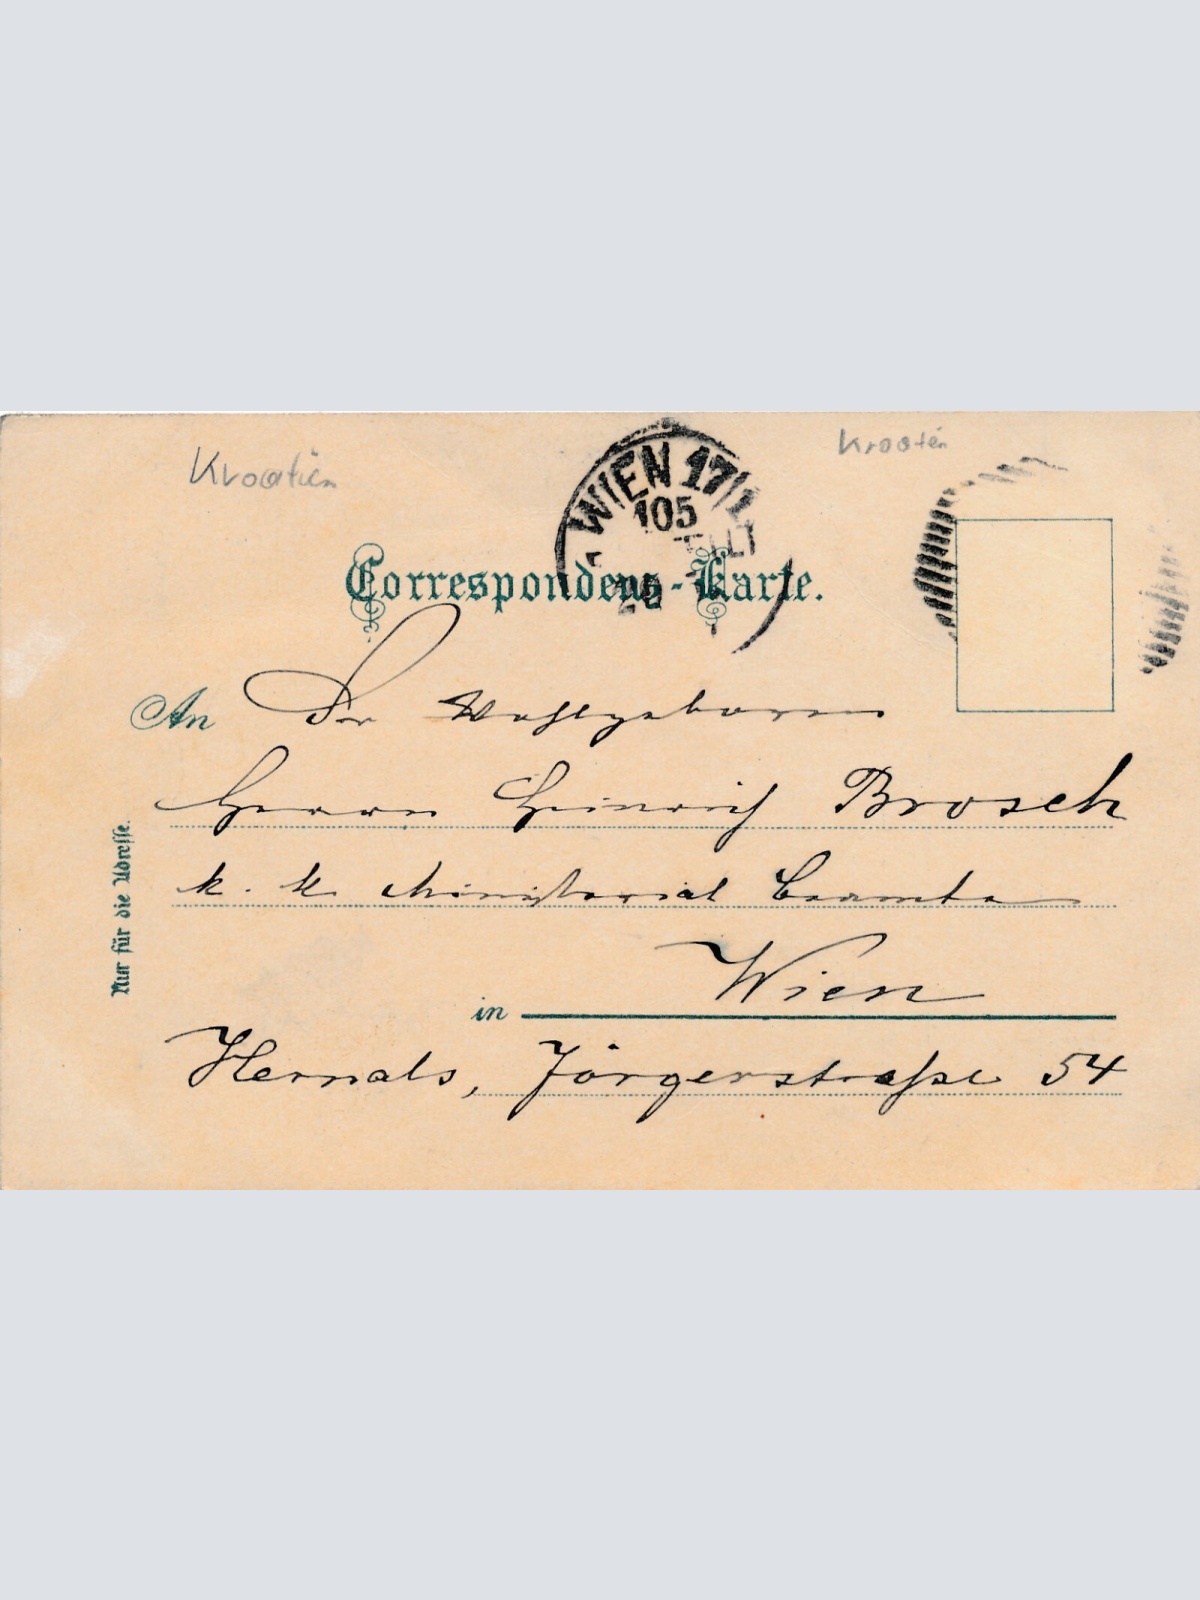 Kroatien
Kroatien
WIEN 17/1
105
Correspondenz-Karte.
An Sr Wohlgeboren
Herrn Heinrich Brosch
k. k. Ministerial Beamter
in Wien
Hernals, Jörgerstraße 54
Nur für die Adresse.